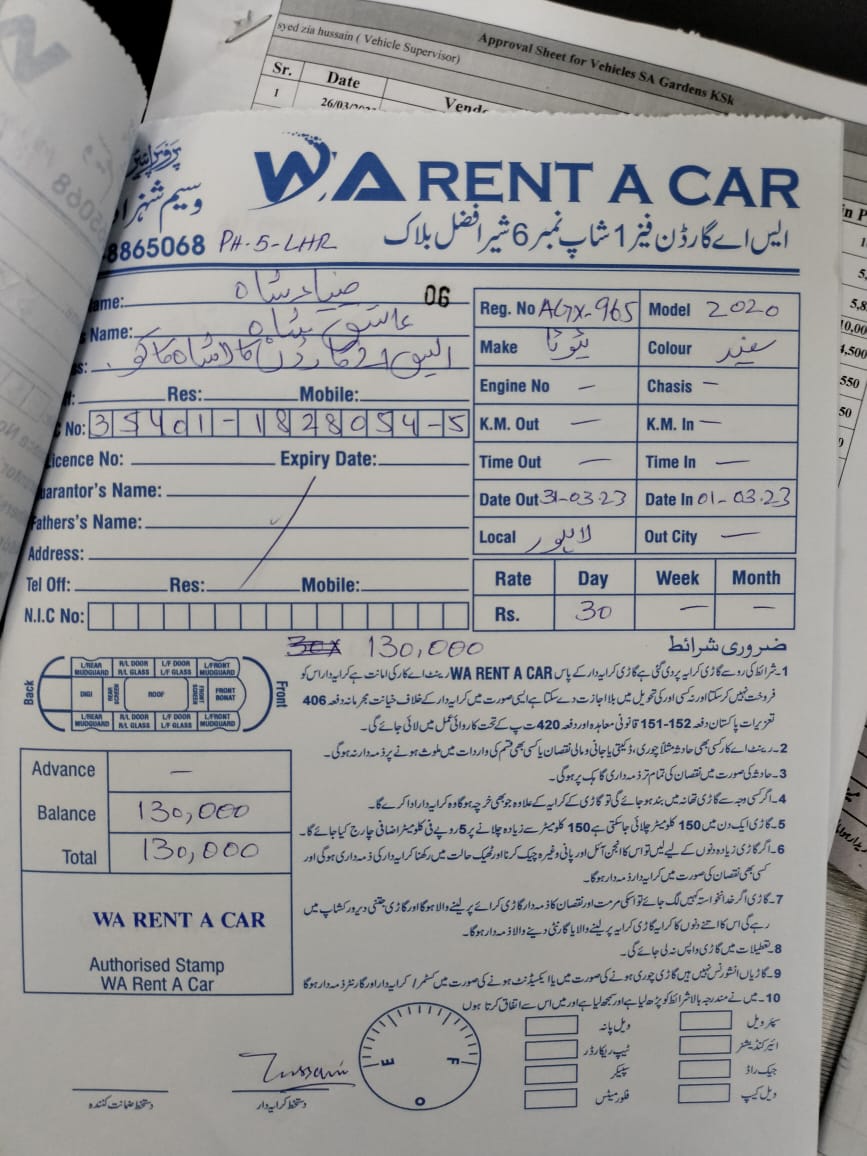 syed zia hussain ( Vehicle Supervisor)
Approval Sheet for Vehicles SA Gardens KSk
Sr. Date
1
پروپرائیٹر
وسیم شہزا
WA RENT A CAR
8865068 PH-5-LHR
ایس اے گارڈن فیز 1 شاپ نمبر 6 شیر افضل بلاک
ame: ضیاد شاہ 06
Name: عاشق شاہ
Res: Mobile:
No: 35401-1828054-5
Licence No: Expiry Date:
uarantor's Name:
Fathers's Name:
Address:
Tel Off: Res: Mobile:
N.I.C No:
Reg. No AGX-965 Model 2020
Make ٹیوٹا Colour سفید
Engine No — Chasis —
K.M. Out — K.M. In —
Time Out — Time In —
Date Out 31-03-23 Date In 01-03-23
Local لاہور Out City —
Rate Day Week Month
Rs. 30 — —
130,000
Back
L/REAR MUDGUARD R/L DOOR R/L GLASS L/F DOOR L/F GLASS L/FRONT MUDGUARD
DIGI ROOF FRONT BONAT
L/REAR MUDGUARD R/L DOOR R/L GLASS L/F DOOR L/F GLASS L/FRONT MUDGUARD
Front
Advance —
Balance 130,000
Total 130,000
WA RENT A CAR
Authorised Stamp
WA Rent A Car
ضروری شرائط
1- شرائط کی رو سے گاڑی کرایہ پر دی گئی ہے گاڑی کرایہ دار کے پاس WA RENT A CAR رینٹ اے کار کی امانت ہے کرایہ دار اس کو
فروخت نہیں کر سکتا اور نہ کسی اور کی تحویل میں بلا اجازت دے سکتا ہے ایسی صورت میں کرایہ دار کے خلاف خیانت مجرمانہ دفعہ 406
تعزیرات پاکستان دفعہ 152-151 قانونی معاہدہ اور دفعہ 420 ت پ کے تحت کاروائی عمل میں لائی جائے گی۔
2- رینٹ اے کار کسی بھی حادثہ مثلاً چوری، ڈکیتی یا جانی و مالی نقصان یا کسی بھی قسم کی واردات میں ملوث ہونے پر ذمہ دار نہ ہوگی۔
3- حادثہ کی صورت میں نقصان کی تمام تر ذمہ داری گاہک پر ہوگی۔
4- اگر کسی وجہ سے گاڑی تھانہ میں بند ہو جائے گی تو گاڑی کے کرایہ کے علاوہ جو بھی خرچہ ہوگا وہ کرایہ دار ادا کرے گا۔
5- گاڑی ایک دن میں 150 کلومیٹر چلائی جا سکتی ہے 150 کلومیٹر سے زیادہ چلانے پر 5 روپے فی کلومیٹر اضافی چارج کیا جائے گا۔
6- اگر گاڑی زیادہ دنوں کے لیے لیں تو اس کا انجن آئل اور پانی وغیرہ چیک کرنا اور ٹھیک حالت میں رکھنا کرایہ دار کی ذمہ داری ہوگی اور
کسی بھی نقصان کی صورت میں کرایہ دار ذمہ دار ہوگا۔
7- گاڑی اگر خدانخواستہ کہیں لگ جائے تو اسکی مرمت اور نقصان کا ذمہ دار گاڑی کرائے پر لینے والا ہوگا اور گاڑی جتنی دیر ورکشاپ میں
رہے گی اس کا اتنے دنوں کا کرایہ گاڑی کرایہ پر لینے والا یا گارنٹی دینے والا ذمہ دار ہوگا۔
8- تعطیلات میں گاڑی واپس نہ لی جائے گی۔
9- گاڑیاں انشورنس نہیں ہیں گاڑی چوری ہونے کی صورت میں یا ایکسیڈنٹ ہونے کی صورت میں کسٹمر / کرایہ دار اور گارنٹر ذمہ دار ہوگا
10- میں نے مندرجہ بالا شرائط کو پڑھ لیا ہے اور سمجھ لیا ہے اور میں اس سے اتفاق کرتا ہوں
E F
O
ویل پانہ سپئر ویل
ٹیپ ریکارڈر ائیر کنڈیشنر
سپیکر جیک راڈ
فلور میٹس ویل کیپ
Hussain
دستخط ضمانت کنندہ دستخط کرایہ دار